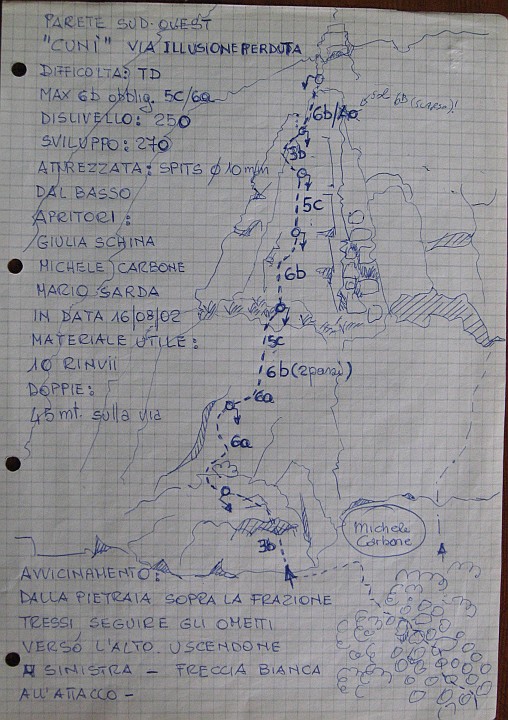 PARETE SUD-OUEST
"CUNÌ" VIA ILLUSIONE PERDUTA
DIFFICOLTÀ: TD
MAX 6b obblig. 5c/6a
DISLIVELLO: 250
SVILUPPO: 270
ATTREZZATA: SPITS Ø 10 mm
DAL BASSO
APRITORI:
GIULIA SCHINA
MICHELE CARBONE
MARIO SARDA
IN DATA 16/08/02
MATERIALE UTILE:
10 RINVII
DOPPIE:
45 mt. sulla via
6b/A0
3b
5c
6b
5c
6b (2passi)
6a
6a
3b
Michele
Carbone
AVVICINAMENTO:
DALLA PIETRAIA SOPRA LA FRAZIONE
TRESSI SEGUIRE GLI OMETTI
VERSO L'ALTO USCENDONE
A SINISTRA - FRECCIA BIANCA
ALL'ATTACCO -